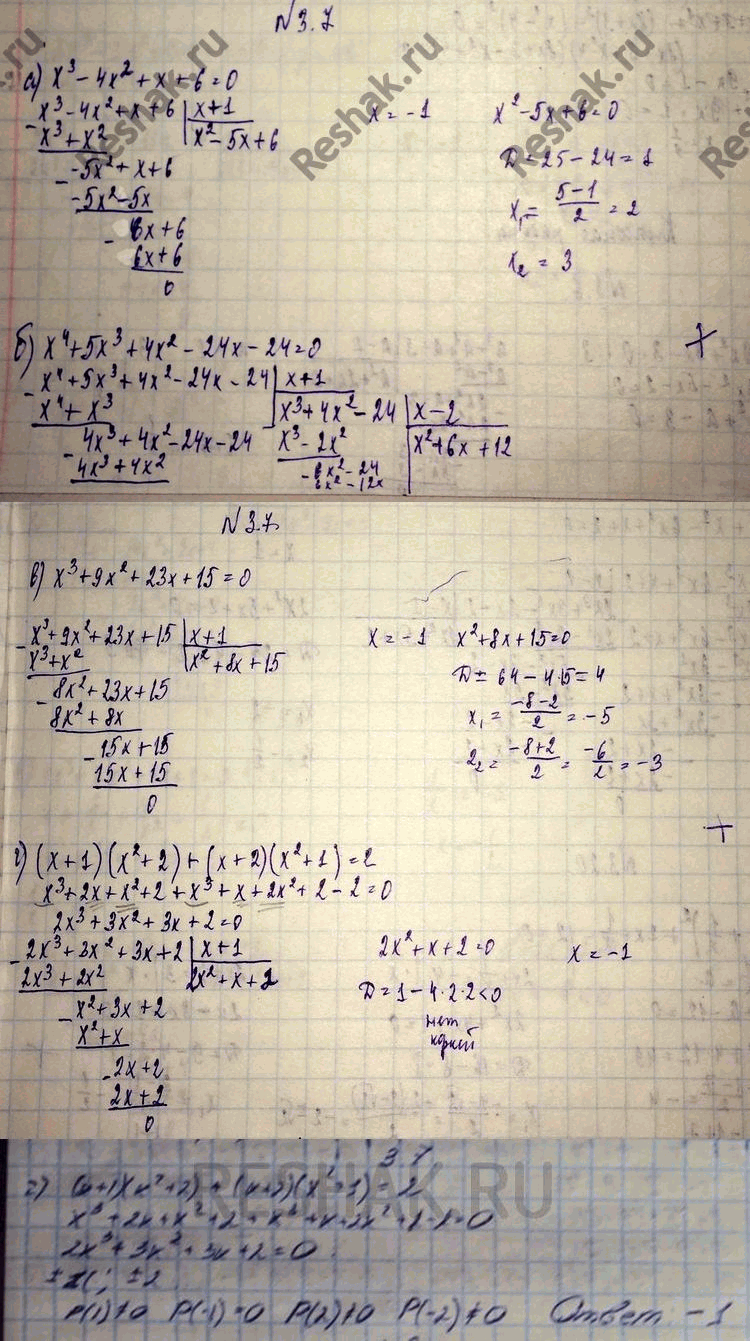 N3.7
а) x³ - 4x² + x + 6 = 0
x³ - 4x² + x + 6 | x + 1
x³ + x² | x² - 5x + 6
-5x² + x + 6
-5x² - 5x
6x + 6
6x + 6
0
x = -1
x² - 5x + 6 = 0
D = 25 - 24 = 1
x₁ = (5-1)/2 = 2
x₂ = 3
б) x⁴ + 5x³ + 4x² - 24x - 24 = 0
x⁴ + 5x³ + 4x² - 24x - 24 | x + 1
x⁴ + x³ | x³ + 4x² - 24 | x - 2
4x³ + 4x² - 24x - 24 x³ - 2x² | x² + 6x + 12
4x³ + 4x² 6x² - 24
6x² - 12x
N3.7
в) x³ + 9x² + 23x + 15 = 0
x³ + 9x² + 23x + 15 | x + 1
x³ + x² | x² + 8x + 15
8x² + 23x + 15
8x² + 8x
15x + 15
15x + 15
0
x = -1
x² + 8x + 15 = 0
D = 64 - 4·15 = 4
x₁ = (-8-2)/2 = -5
2₂ = (-8+2)/2 = -6/2 = -3
г) (x+1)(x²+2) + (x+2)(x²+1) = 2
x³ + 2x + x² + 2 + x³ + x + 2x² + 2 - 2 = 0
2x³ + 3x² + 3x + 2 = 0
2x³ + 3x² + 3x + 2 | x + 1
2x³ + 2x² | 2x² + x + 2
x² + 3x + 2
x² + x
2x + 2
2x + 2
0
2x² + x + 2 = 0
D = 1 - 4·2·2 < 0
нет
корней
x = -1
3.7
г) (x+1)(x²+2) + (x+2)(x²+1) = 2
x³ + 2x + x² + 2 + x³ + x + 2x² + 2 - 2 = 0
2x³ + 3x² + 3x + 2 = 0
±1; ±2
P(1)≠0 P(-1)=0 P(2)≠0 P(-2)≠0 Ответ: -1
Reshak.ru
RESHAK.RU